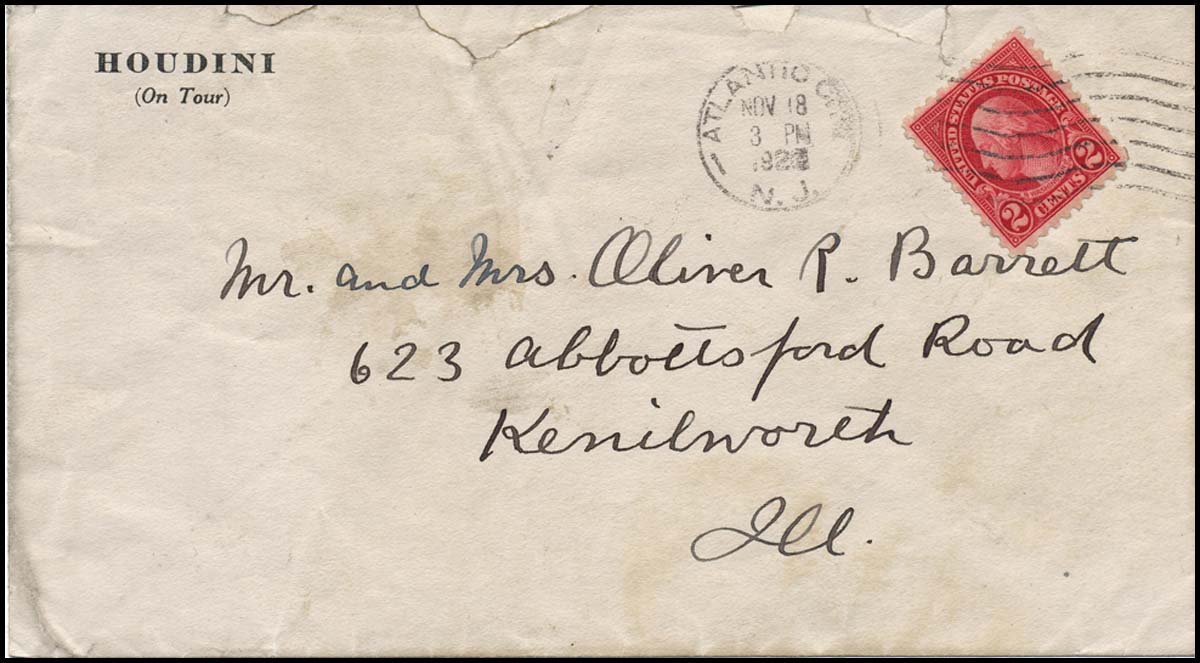 HOUDINI
(On Tour)
ATLANTIC CITY
NOV 18
3 PM
N. J.
UNITED STATES POSTAGE
2 CENTS 2
Mr. and Mrs. Oliver R. Barrett
623 Abbottsford Road
Kenilworth
Ill.